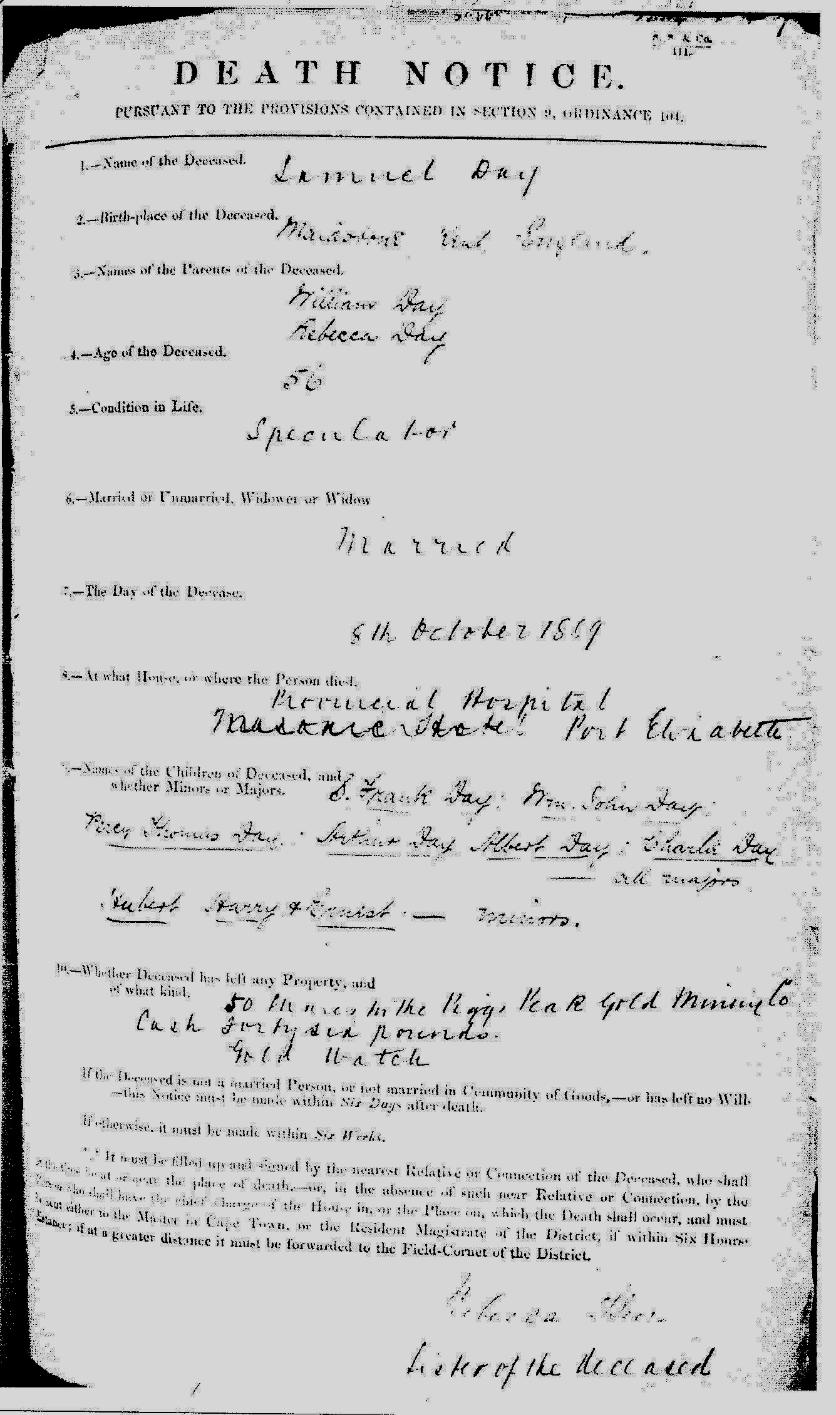 & Co.
DEATH NOTICE.
PURSUANT TO THE PROVISIONS CONTAINED IN SECTION 9, ORDINANCE 104.
1.—Name of the Deceased. Samuel Day
2.—Birth-place of the Deceased. Maidstone Kent England.
3.—Names of the Parents of the Deceased.
William Day
Rebecca Day
4.—Age of the Deceased.
56
5.—Condition in Life.
Speculator
6.—Married or Unmarried, Widower or Widow
Married
7.—The Day of the Decease.
8th October 1889
8.—At what House, or where the Person died.
Provincial Hospital
Masonic Hotel Port Elizabeth
9.—Names of the Children of Deceased, and
whether Minors or Majors. S. Frank Day: Wm. John Day:
Percy Thomas Day: Arthur Day Albert Day: Charlie Day
— all majors
Hubert Harry & Ernest — minors.
10.—Whether Deceased has left any Property, and
of what kind. 50 Shares in the Piggs Peak Gold Mining Co
Cash Forty six pounds.
Gold Watch
If the Deceased is not a married Person, or not married in Community of Goods,—or has left no Will
—this Notice must be made within Six Days after death.
If otherwise, it must be made within Six Weeks.
It must be filled up and signed by the nearest Relative or Connection of the Deceased, who shall
at the time be at or near the place of death,—or, in the absence of such near Relative or Connection, by the
Person who shall have the chief charge of the House in, or the Place on, which the Death shall occur, and must
be sent either to the Master in Cape Town, or the Resident Magistrate of the District, if within Six Hours'
distance; if at a greater distance it must be forwarded to the Field-Cornet of the District.
Rebecca
Sister of the deceased